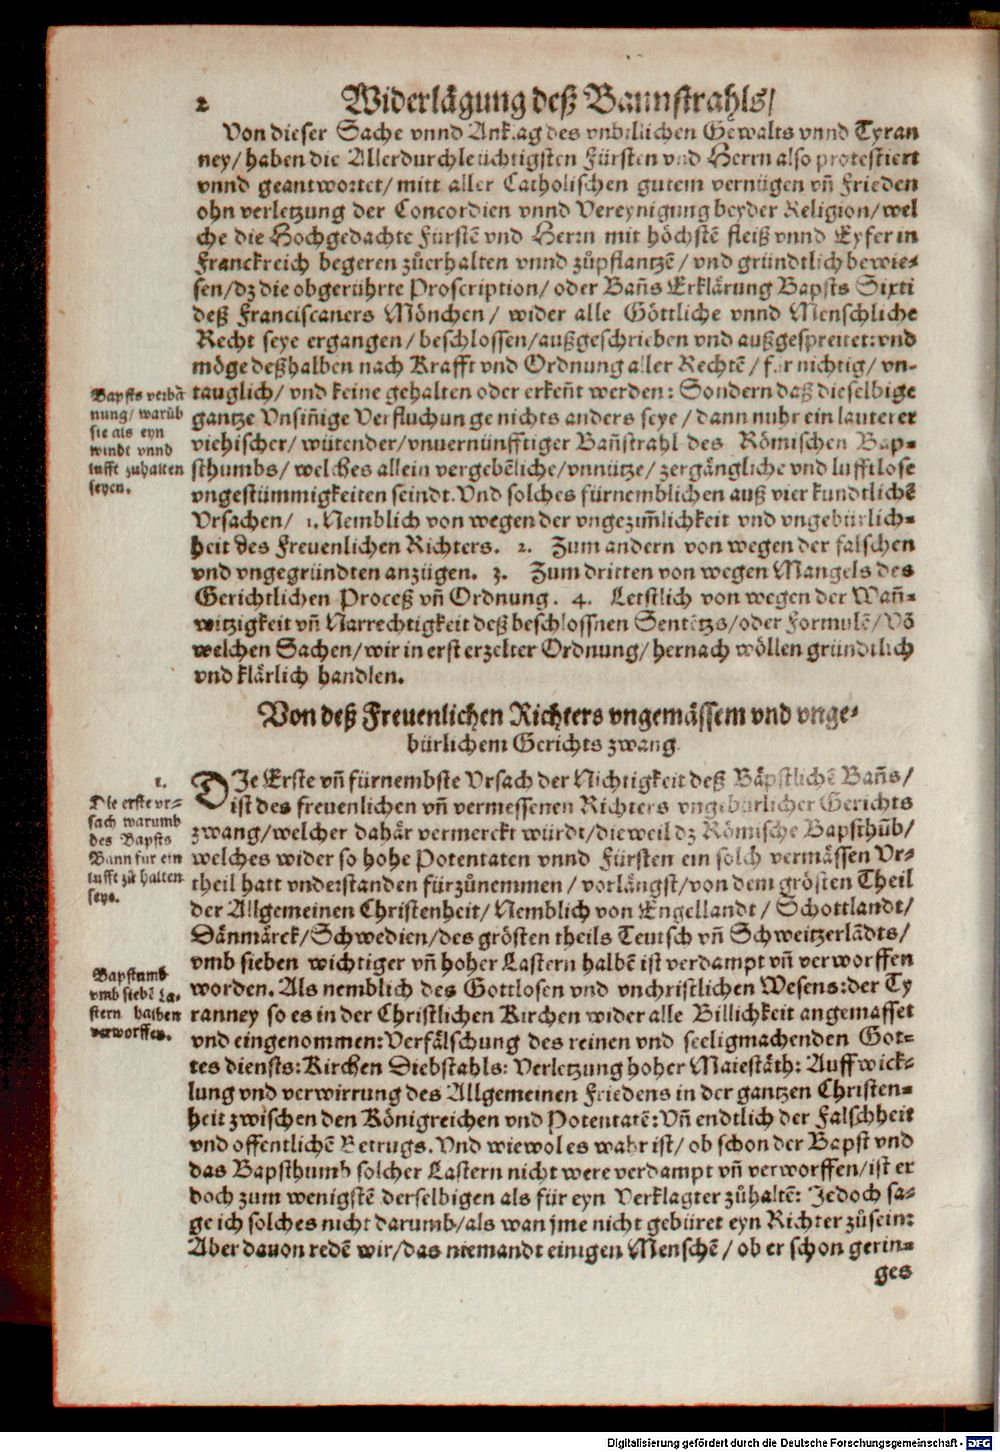 2 Widerlägung deß Bannstrahls/
Von dieser Sache vnnd Anklag des vnbillichen Gewalts vnnd Tyran
ney/ haben die Allerdurchleüchtigsten Fürsten vnd Herrn also protestiert
vnnd geantwortet/ mitt aller Catholischen gutem vernügen vn̄ Frieden
ohn verletzung der Concordien vnnd Vereynigung beyder Religion/ wel
che die Hochgedachte Fürstē vnd Herrn mit höchstē fleiß vnnd Eyfer in
Franckreich begeren zůerhalten vnnd zůpflantzē/ vnd gründtlich bewie-
sen/ dz die obgerührte Proscription/ oder Bañs Erklärung Bapsts Sixti
deß Franciscaners Mönchen/ wider alle Göttliche vnnd Menschliche
Recht seye ergangen/ beschlossen/ außgeschrieben vnd außgespreitet: vnd
möge deßhalben nach Krafft vnd Ordnung aller Rechtē/ für nichtig/ vn-
tauglich/ vnd keine gehalten oder erkeñt werden: Sondern daß dieselbige
gantze Vnsiñige Verfluchunge nichts anders seye/ dann nuhr ein lauterer
viehischer/ wütender/ vnuernünfftiger Bañstrahl des Römischen Bap-
sthumbs/ welches allein vergebēliche/ vnnütze/ zergängliche vnd lufftlose
vngestümmigkeiten seindt. Vnd solches fürnemblichen auß vier kundtlichē
Vrsachen/ 1. Nemblich von wegen der vngezum̄lichkeit vnd vngebürlich-
heit des Freuenlichen Richters. 2. Zum andern von wegen der falschen
vnd vngegründten anzügen. 3. Zum dritten von wegen Mangels des
Gerichtlichen Proceß vn̄ Ordnung. 4. Letstlich von wegen der Wañ-
witzigkeit vn̄ Narrechtigkeit deß beschlossnen Sentētzs/ oder Formulē/ Võ
welchen Sachen/ wir in erst erzelter Ordnung/ hernach wöllen gründtlich
vnd klärlich handlen.
Bapsts verbā
nung/ warūb
sie als eyn
windt vnnd
lufft zuhalten
seyen.
Von deß Freuenlichen Richters vngemässem vnd vnge-
bürlichem Gerichts zwang.
1.
Die erste vr-
sach warumb
des Bapsts
Bann fur ein
lufft zů halten
seye.
DIe Erste vn̄ fürnembste Vrsach der Nichtigkeit deß Bäpstlichē Bañs/
ist des freuenlichen vn̄ vermessenen Richters vngebürlicher Gerichts
zwang/ welcher dahär vermerckt würdt/ dieweil dz Römische Bapsthūb/
welches wider so hohe Potentaten vnnd Fürsten ein solch vermässen Vr-
theil hatt vnderstanden fürzůnemmen/ vorlängst/ von dem grösten Theil
der Allgemeinen Christenheit/ Nemblich von Engellandt/ Schottlandt/
Dänmärck/ Schwedien/ des grösten theils Teutsch vn̄ Schweitzerlādts/
vmb sieben wichtiger vn̄ hoher Lastern halbē ist verdampt vn̄ verworffen
worden. Als nemblich des Gottlosen vnd vnchristlichen Wesens: der Ty
ranney so es in der Christlichen Kirchen wider alle Billichkeit angemasset
vnd eingenommen: Verfälschung des reinen vnd seeligmachenden Got-
tes diensts: Kirchen Diebstahls: Verletzung hoher Maiestäth: Auffwick-
lung vnd verwirrung des Allgemeinen Friedens in der gantzen Christen-
heit zwischen den Königreichen vnd Potentatē: Vn̄ endtlich der Falschheit
vnd offentlichē Betrugs. Vnd wiewol es wahr ist/ ob schon der Bapst vnd
das Bapsthumb solcher Lastern nicht were verdampt vn̄ verworffen/ ist er
doch zum wenigstē derselbigen als für eyn Verklagter zůhaltē: Jedoch sa-
ge ich solches nicht darumb/ als wan jme nicht gebüret eyn Richter zůsein:
Aber dauon redē wir/ das niemandt einigen Menschē/ ob er schon gerin-
Bapstumb
vmb siebē La-
stern halben
verworffen.
ges
Digitalisierung gefördert durch die Deutsche Forschungsgemeinschaft - DFG